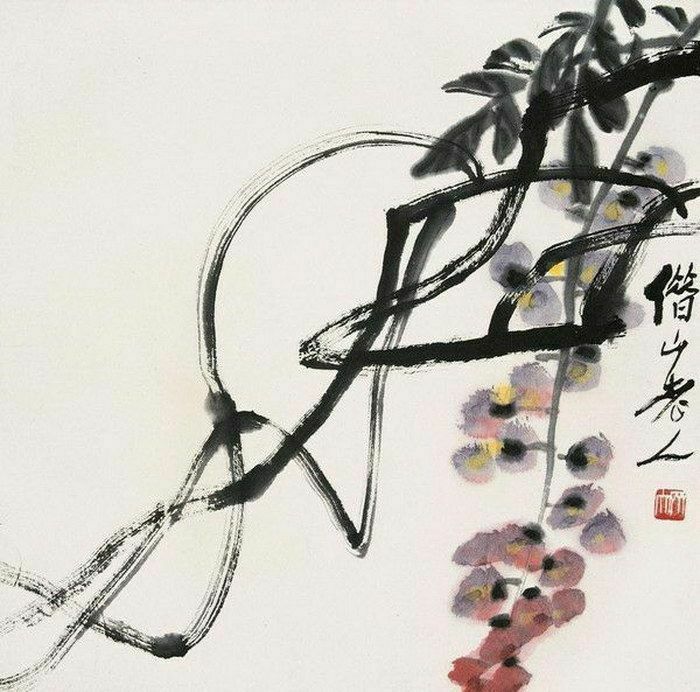 借山老人